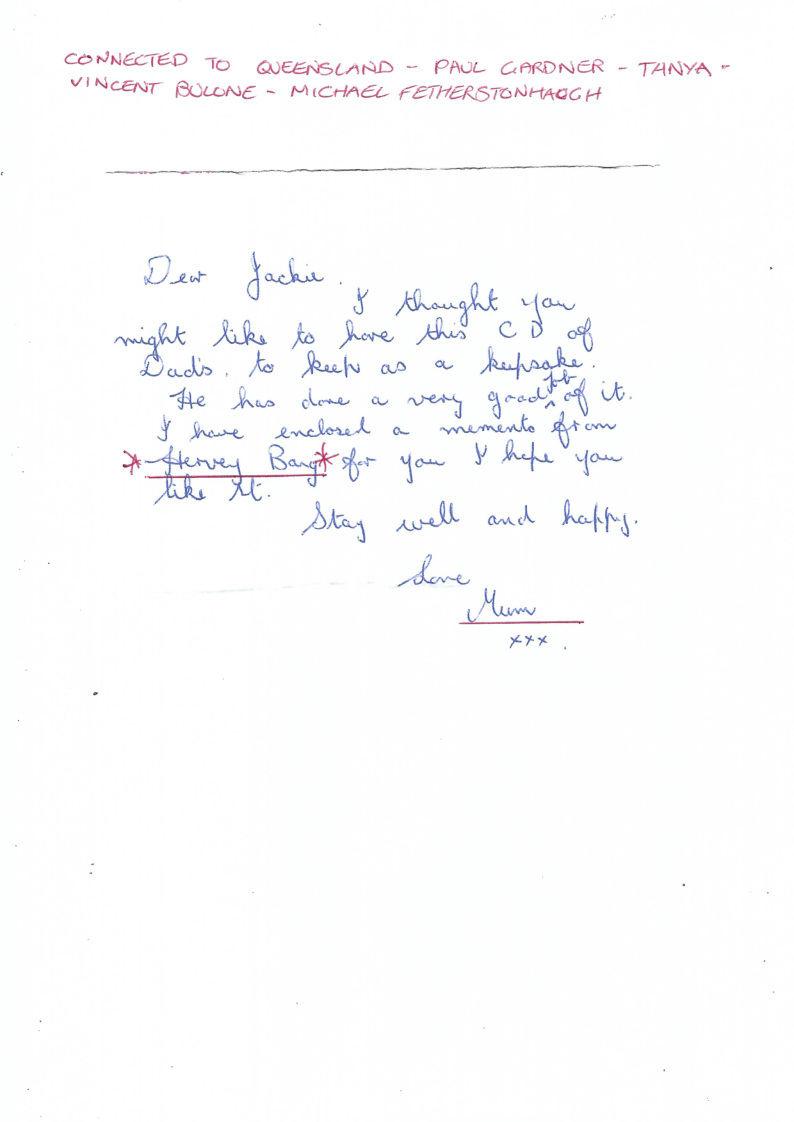 CONNECTED TO QUEENSLAND - PAUL GARDNER - TANYA -
VINCENT BULONE - MICHAEL FETHERSTONHAUGH
Dear Jackie.
I thought you
might like to have this CD of
Dad's. to keep as a keepsake.
He has done a very good job of it.
I have enclosed a memento from
*Hervey Bay* for you I hope you
like it.
Stay well and happy.
Love
Mum
xxx.